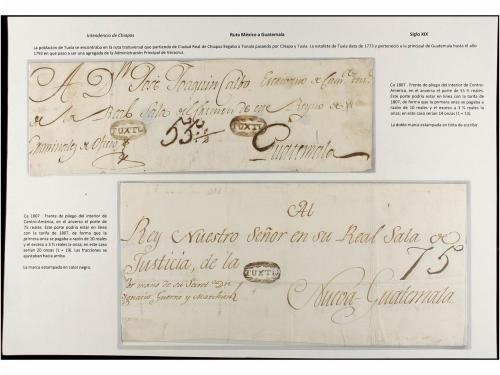 Intendencia de Chiapas Ruta México a Guatemala Siglo XIX
La población de Tuxla se encontraba en la ruta transversal que partiendo de Ciudad Real de Chiapas llegaba a Tonalá pasando por Chiapa y Tuxla. La estafeta de Tuxla data de 1773 y perteneció a la principal de Guatemala hasta el año
1792 en que pasó a ser una agregada de la Administración Principal de Veracruz.
A Dn Jose Joaquin Calvo Escribano de
de la Real Sala del Crimen de este Reyno de
TUXTL 55 1/2 TUXTL
Criminales de Oficio
Guatemala
CA 1807 . Frente de pliego del interior de
Centro-América, en el anverso el porte de 55 ½ reales.
Este porte podría estar en línea con la tarifa de
1807, de forma que la primera onza se pagaba a
razón de 10 reales y el exceso a 3 ½ reales la
onza; en este caso serían 14 onzas (1 + 13).
La doble marca estampada en tinta de escribir
Ca 1807 . Frente de pliego del interior de
Centro-América, en el anverso el porte de
75 reales. Este porte podría estar en línea
con la tarifa de 1807, de forma que la
primera onza se pagaba a razón de 10 reales
y el exceso a 3 ½ reales la onza; en este caso
serían 20 onzas (1 + 19). Las fracciones se
ajustaban hacia arriba.
La marca estampada en color negro.
Al
Rey Nuestro Señor en su Real Sala de
Justicia, de la TUXTL 75
Por mano de su Secret.º Dn
Ignacio Guerra y Marchan
Nueva Guatemala